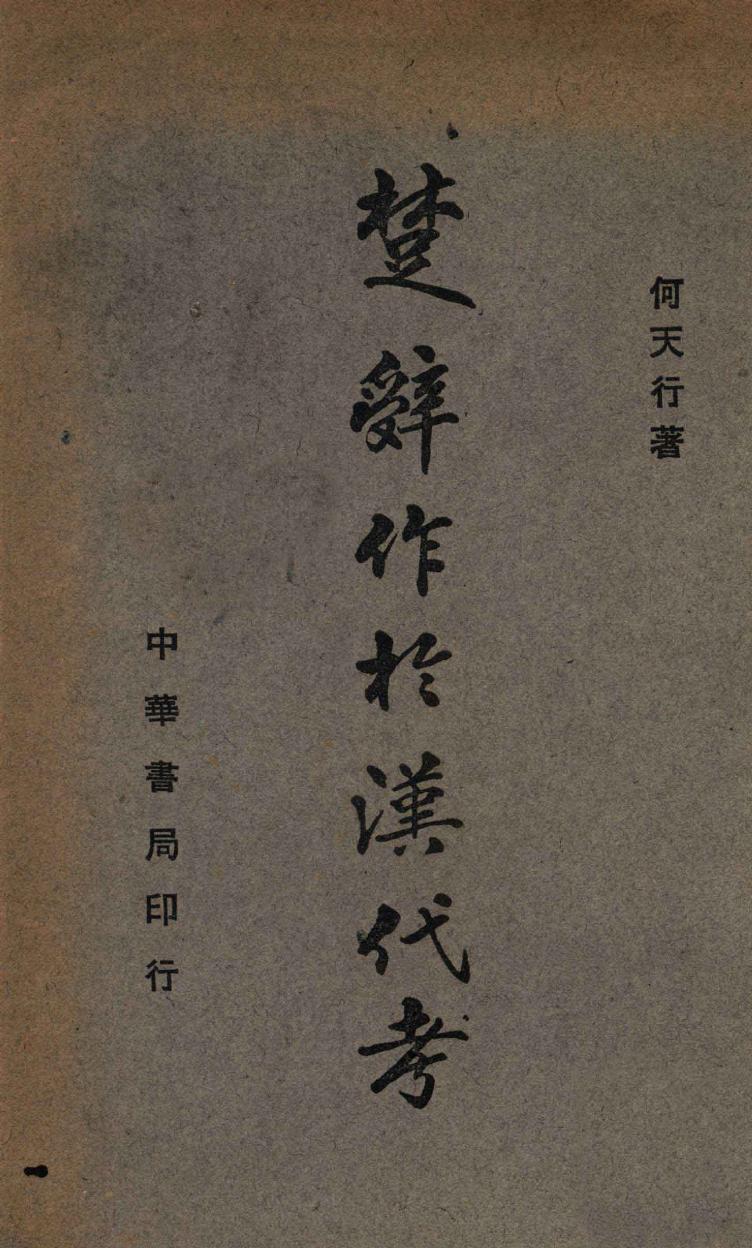 何天行著
楚辭作於漢代考
中華書局印行